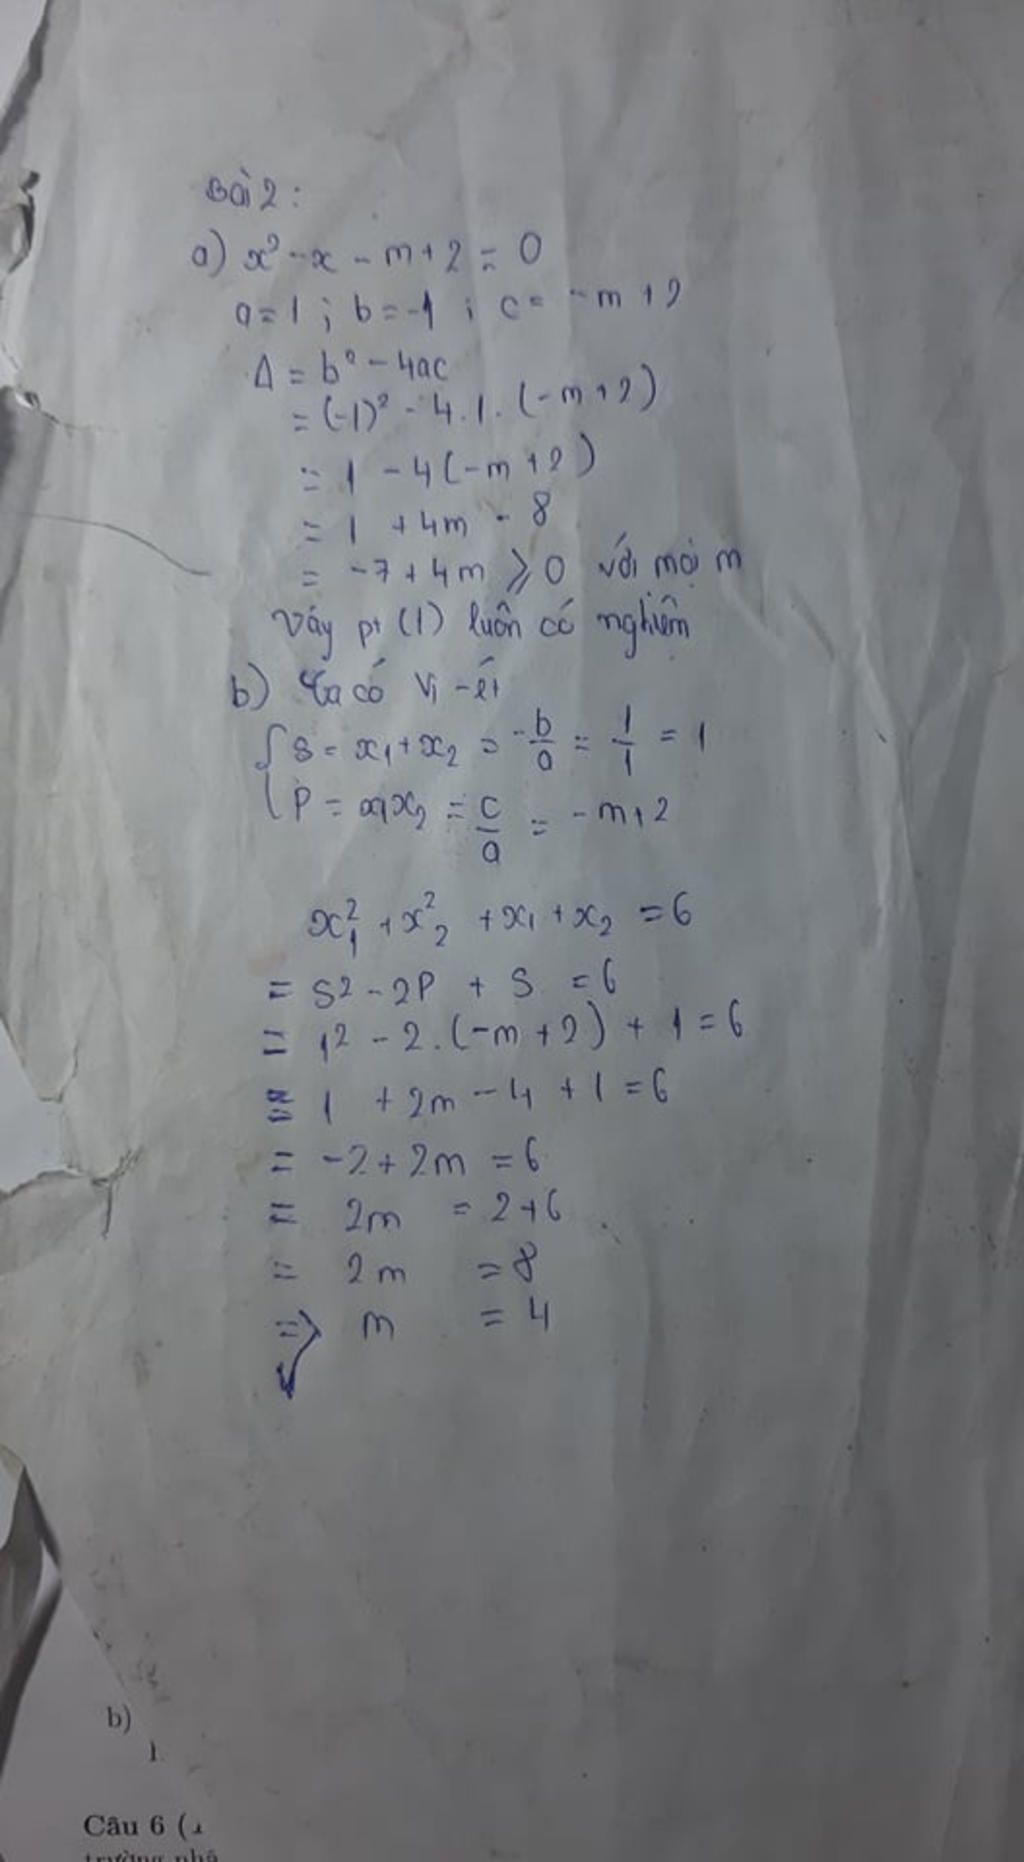 Bài 2:
a) x² - x - m + 2 = 0
a = 1 ; b = -1 ; c = -m + 2
Δ = b² - 4ac
= (-1)² - 4.1.(-m + 2)
= 1 - 4(-m + 2)
= 1 + 4m - 8
= -7 + 4m ⩾ 0 với mọi m
Vậy pt (1) luôn có nghiệm
b) Ta có Vi-ét
{ S = x₁ + x₂ = -b/a = 1/1 = 1
P = x₁x₂ = c/a = -m + 2
x₁² + x₂² + x₁ + x₂ = 6
= S² - 2P + S = 6
= 1² - 2.(-m + 2) + 1 = 6
= 1 + 2m - 4 + 1 = 6
= -2 + 2m = 6
= 2m = 2 + 6
= 2m = 8
=> m = 4
b)
Câu 6 (